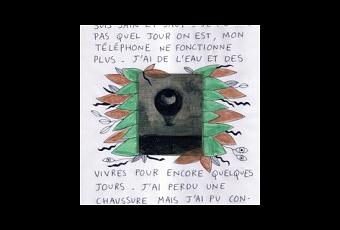 SUIS SAIN ET SAUF. JE
PAS QUEL JOUR ON EST, MON
TÉLÉPHONE NE FONCTIONNE
PLUS. J'AI DE L'EAU ET DES
VIVRES POUR ENCORE QUELQUES
JOURS. J'AI PERDU UNE
CHAUSSURE MAIS J'AI PU CON-